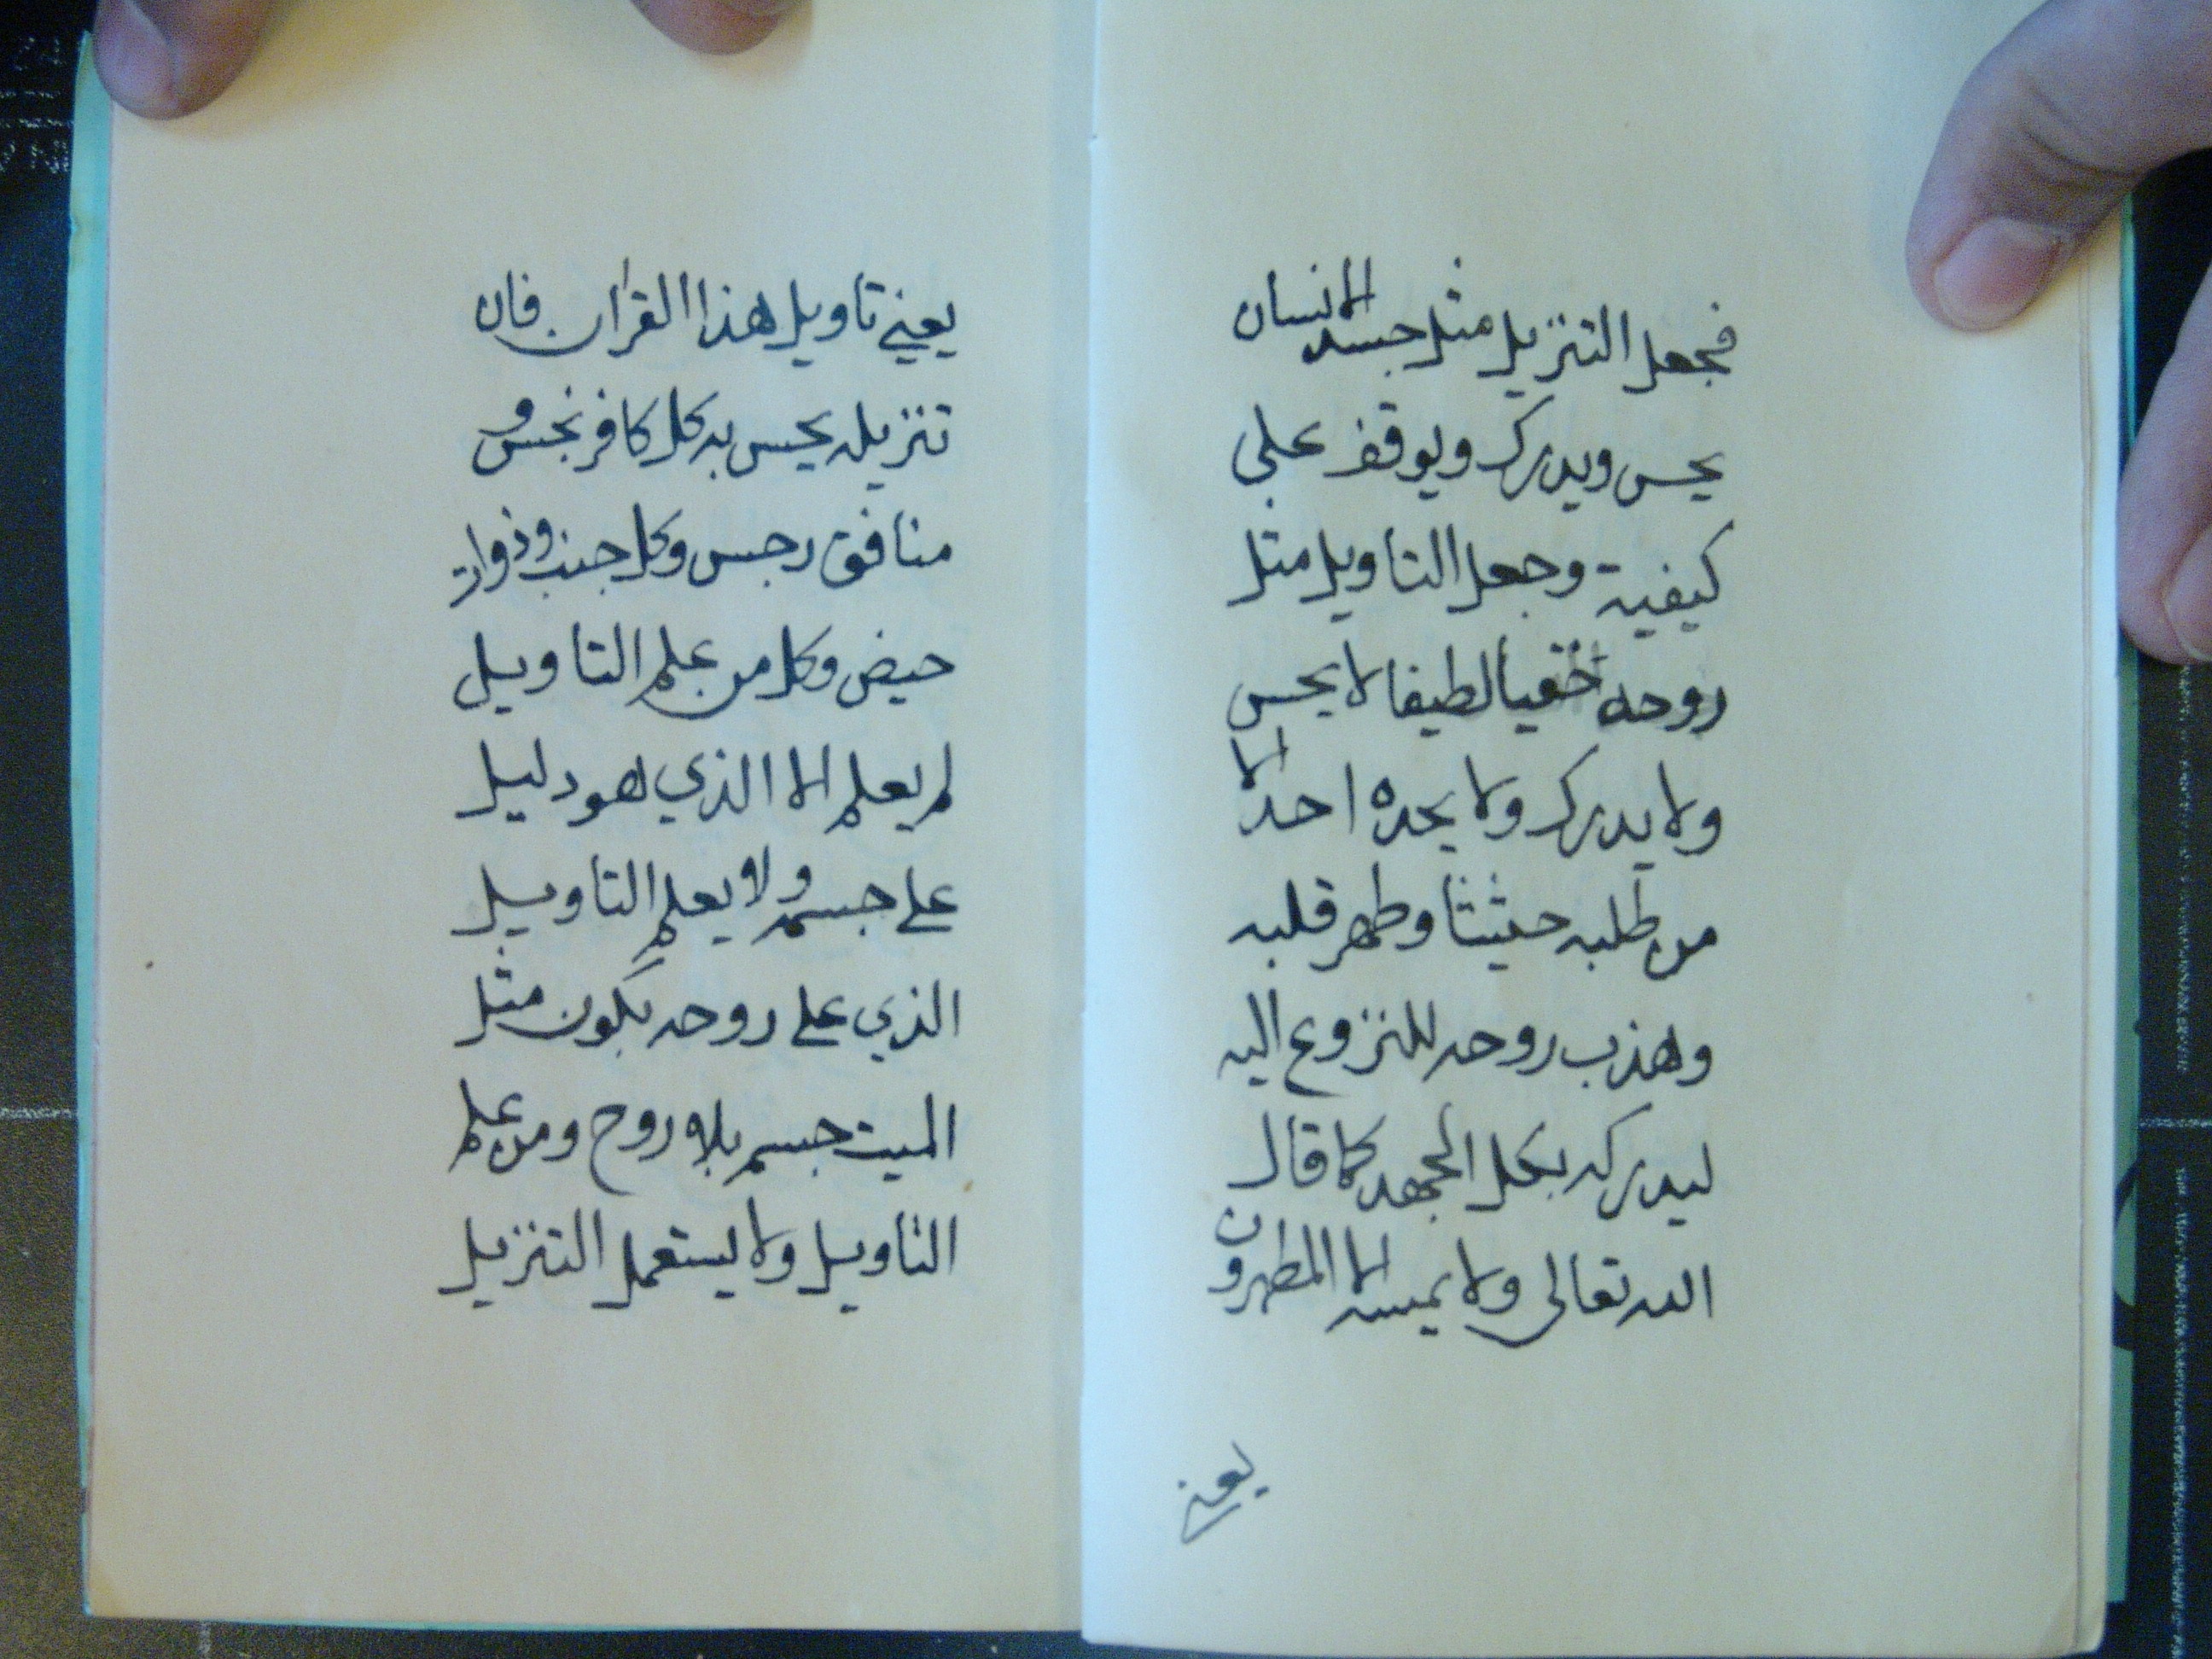 فجعل التنزيل مثل جسد الانسان
يحس ويدرك ويوقف على
كيفية وجعل التاويل مثل
روحه خفيا لطيفا لا يحس
ولا يدرك ولا يجده احد الا
من طلبه حثيثا وطهر قلبه
وهذب روحه للنزوع اليه
ليدركه بكل الجهد كما قال
الله تعالى ولا يمسه الا المطهرون
يعني
يعني تاويل هذا القران فان
تنزيله يحس به كل كافر نجس و
منافق رجس وكل جنب وذوات
حيض وكل من علم التاويل
لم يعلم الا الذي هو دليل
على جسمه ولا يعلم التاويل
الذي على روحه يكون مثل
الميت جسم بلا روح ومن علم
التاويل ولا يستعمل التنزيل